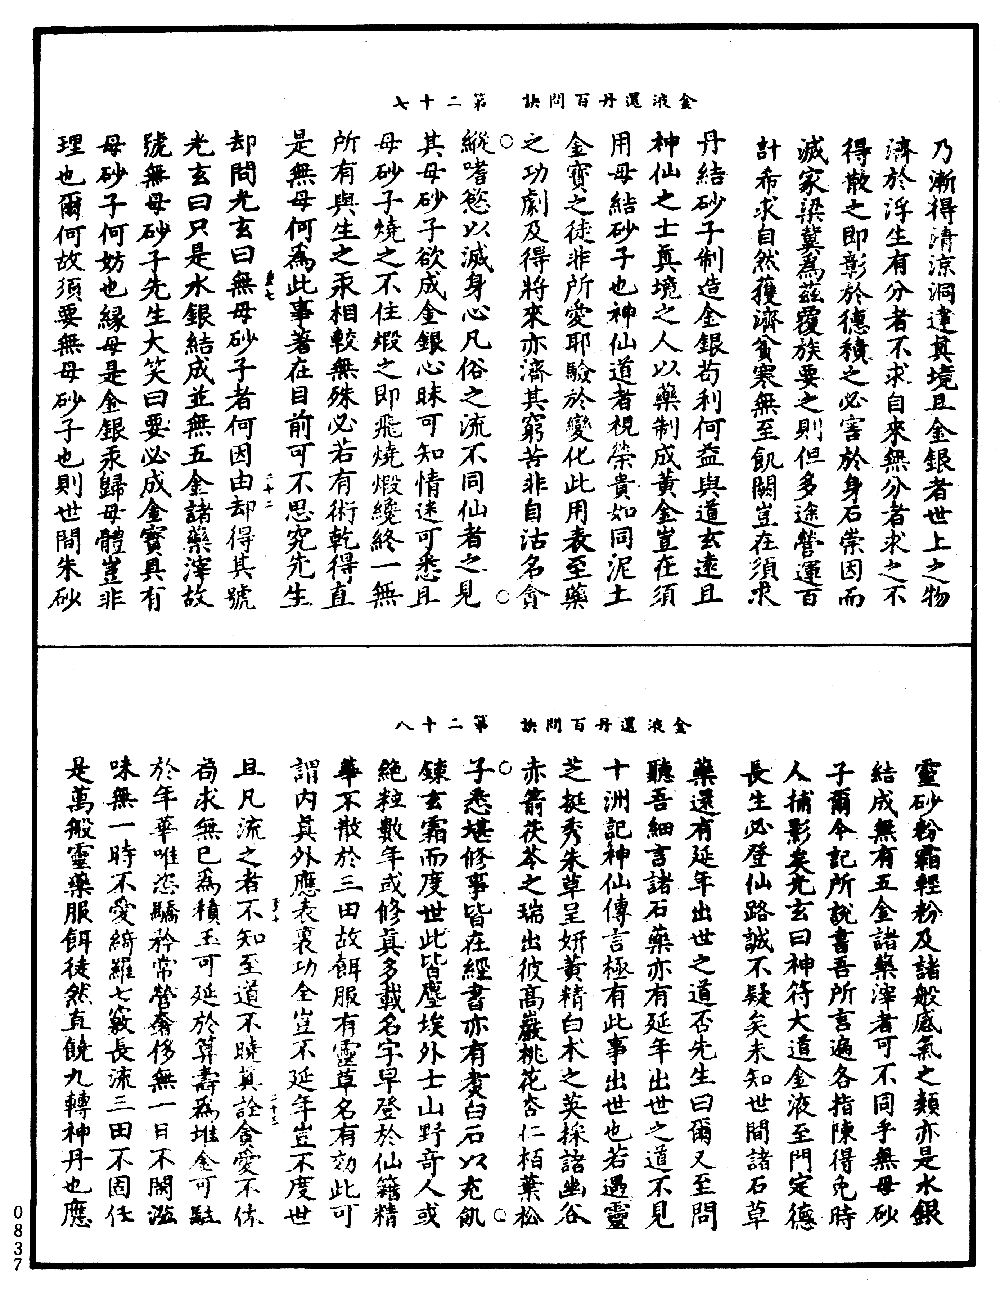 金液還丹百問訣　第二十七
乃漸得清涼洞達真境且金銀者世上之物
濟於浮生有分者不求自來無分者求之不
得散之即彰於德積之必害於身石崇因而
滅家梁冀為茲覆族要之則但多途營運百
計希求自然獲濟貧寒無至飢闕豈在須求
丹結砂子制造金銀苟利何益與道玄遠且
神仙之士真境之人以藥制成黃金豈在須
用母結砂子也神仙道者視榮貴如同泥土
金寶之徒非所愛耶驗於變化此用表至藥
之功劇及得將來亦濟其窮苦非自沽名貪
縱嗜慾以滅身心凡俗之流不同仙者之見
其母砂子欲成金銀心昧可知情迷可悉且
母砂子燒之不住煅之即飛燒煅纔終一無
所有與生之汞相較無殊必若有術乾得直
是無母何為此事著在目前可不思究先生
却問光玄曰無母砂子者何因由却得其號
光玄曰只是水銀結成並無五金諸藥滓故
號無母砂子先生大笑曰要必成金寶具有
母砂子何妨也緣母是金銀汞歸母體豈非
理也爾何故須要無母砂子也則世間朱砂
金液還丹百問訣　第二十八
靈砂粉霜輕粉及諸般感氣之類亦是水銀
結成無有五金諸藥滓者可不同乎無母砂
子爾今記所說書吾所言遍各指陳得免時
人捕影矣光玄曰神符大道金液至門定德
長生必登仙路誠不疑矣未知世間諸石草
藥還有延年出世之道否先生曰爾又至問
聽吾細言諸石藥亦有延年出世之道不見
十洲記神仙傳言極有此事出世也若遇靈
芝挺秀朱草呈妍黃精白术之英採諸幽谷
赤箭茯苓之瑞出彼高巖桃花杏仁栢葉松
子悉堪修事皆在經書亦有煑白石以充飢
鍊玄霜而度世此皆塵埃外士山野奇人或
絶粒數年或修真多載名字早登於仙籍精
華不散於三田故餌服有靈草名有効此可
謂内真外應表裏功全豈不延年豈不度世
且凡流之者不知至道不曉真詮貪愛不休
苟求無已為積玉可延於算壽為堆金可駐
於年華唯恣驕矜常營奢侈無一日不闕滋
味無一時不愛綺羅七竅長流三田不固任
是萬般靈藥服餌徒然直饒九轉神丹也應
0837